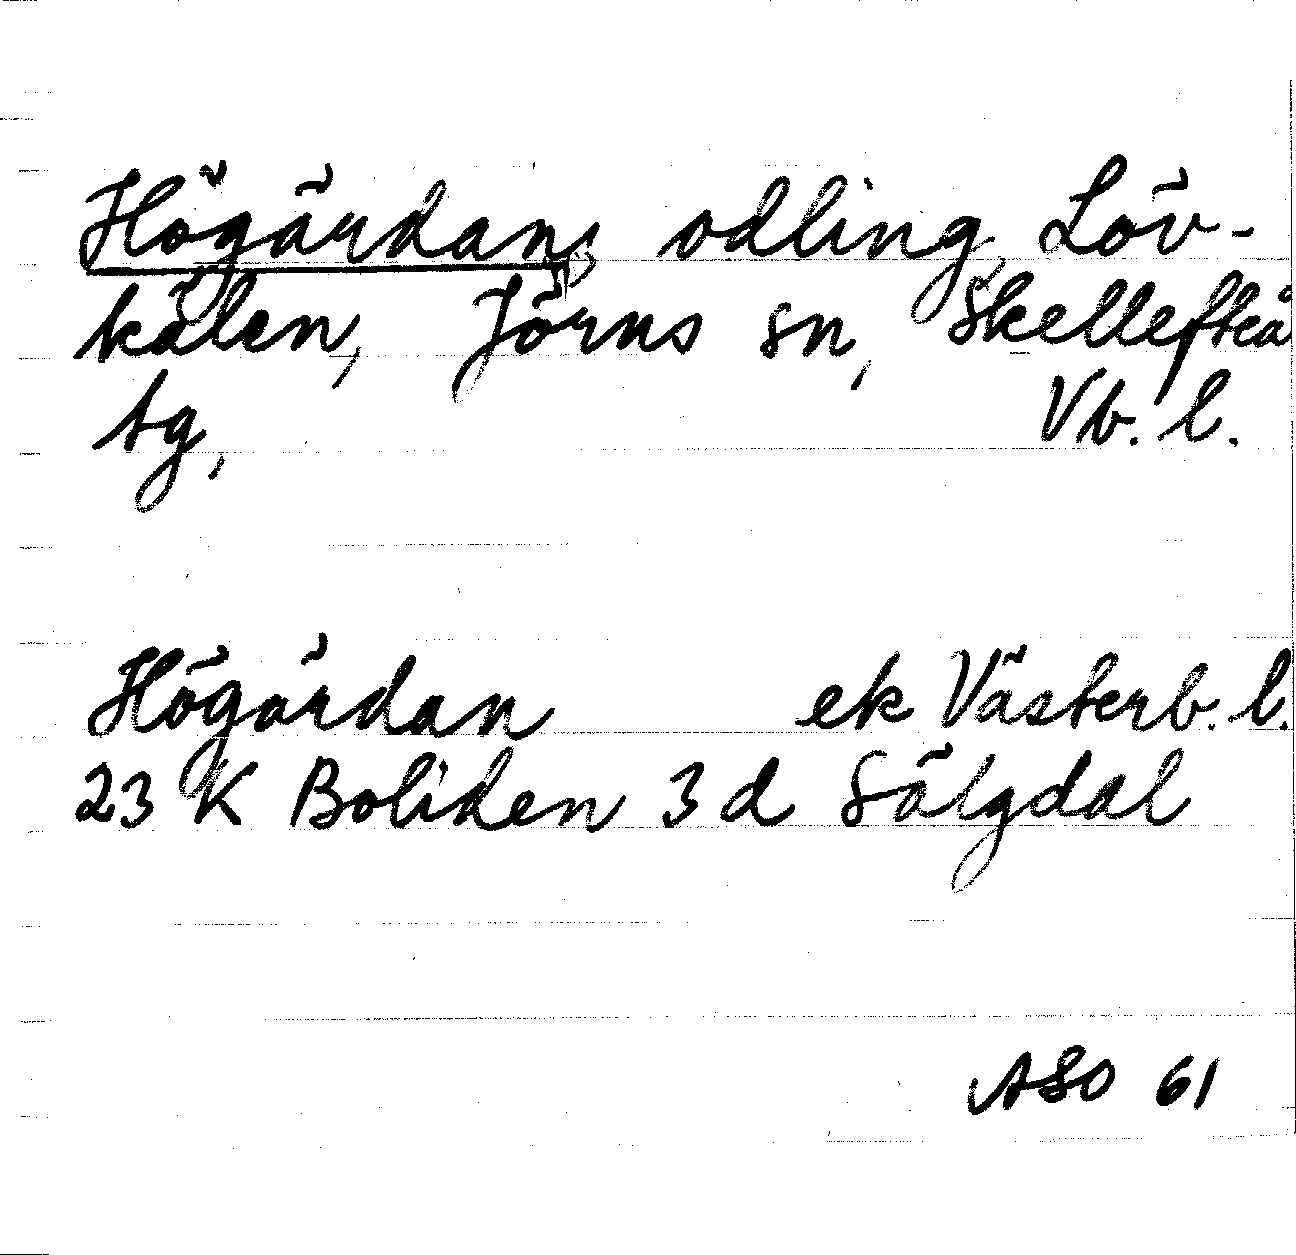 Högärdan, odling, Löv-
kålen, Jörns sn, Skellefteå
tg, Vb. l.
Högärdan ek Västerb. l.
23 K Boliden 3 d Sälgdal
ASO 61